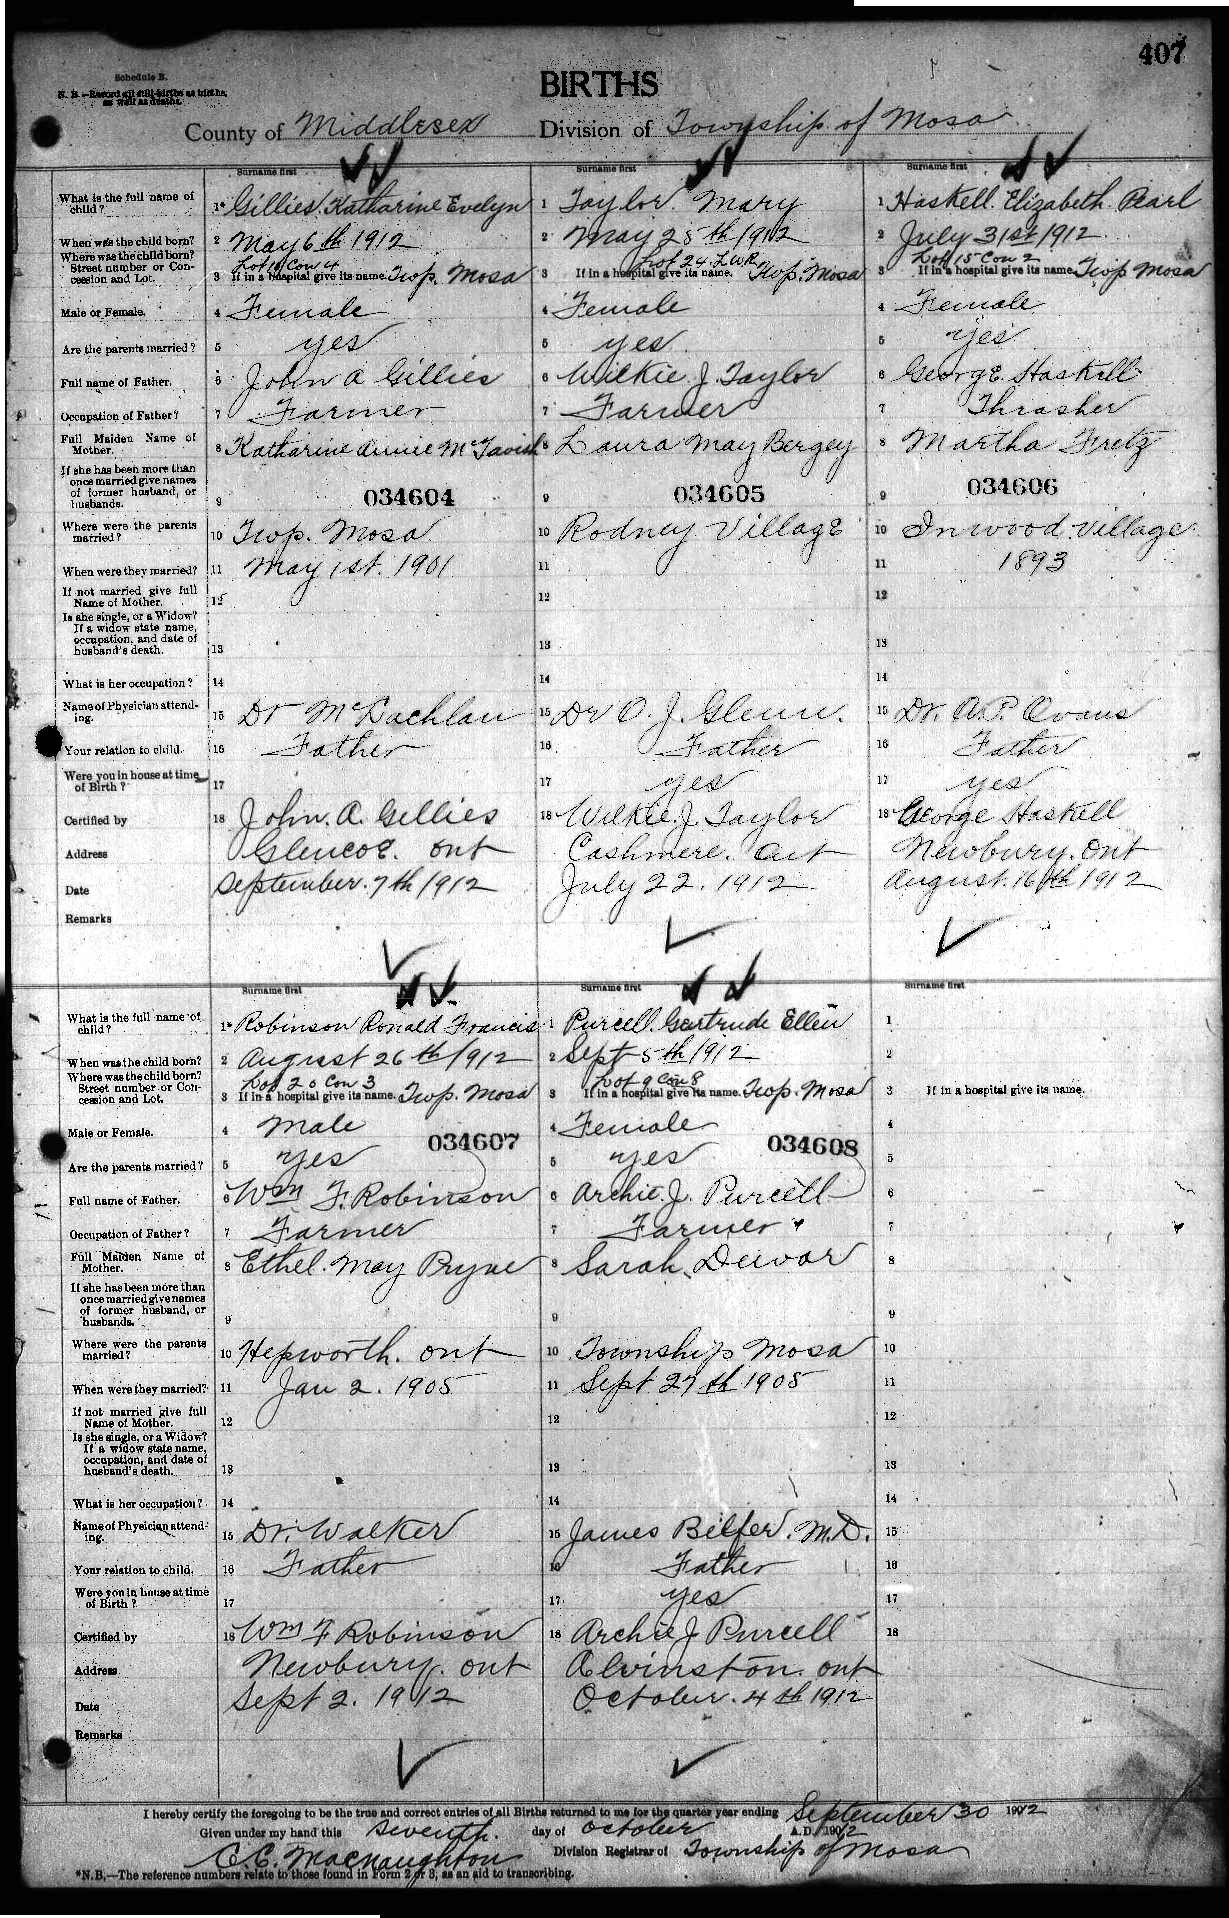 407
Schedule B.
N. B.—Record all still-births as births,
as well as deaths.
BIRTHS
County of Middlesex Division of Township of Mosa
Surname first Surname first Surname first
What is the full name of child? 1* Gillies. Katharine Evelyn 1 Taylor. Mary 1 Haskell. Elizabeth. Pearl
When was the child born? 2 May 6th 1912 2 May 28th 1912 2 July 31st 1912
Where was the child born? Street number or Concession and Lot. 3 If in a hospital give its name. Con 4 Twp. Mosa 3 If in a hospital give its name. Lot 24 Twp. Mosa 3 If in a hospital give its name. Lot 15 Con 2 Twp Mosa
Male or Female. 4 Female 4 Female 4 Female
Are the parents married? 5 yes 5 yes 5 yes
Full name of Father. 6 John A Gillies 6 Wilkie. J. Taylor 6 George. Haskell
Occupation of Father? 7 Farmer 7 Farmer 7 Thrasher
Full Maiden Name of Mother. 8 Katharine Annie McTavish 8 Laura May Bergey 8 Martha Fretz
If she has been more than once married give names of former husband, or husbands. 9 034604 9 034605 9 034606
Where were the parents married? 10 Twp. Mosa 10 Rodney Village 10 Inwood. Village
When were they married? 11 May 1st. 1901 11 11 1893
If not married give full Name of Mother. 12 12 12
Is she single, or a Widow? If a widow state name, occupation, and date of husband's death. 13 13 13
What is her occupation? 14 14 14
Name of Physician attending. 15 Dr McLachlan 15 Dr O. J. Glenn. 15 Dr. A.P. Evans
Your relation to child. 16 Father 16 Father 16 Father
Were you in house at time of Birth? 17 17 yes 17 yes
Certified by 18 John. A. Gillies 18 Wilkie. J. Taylor 18 George Haskell
Address Glencoe. Ont Cashmere. Ont Newbury. Ont
Date September. 7th 1912 July 22. 1912 August. 16th 1912
Remarks
Surname first Surname first Surname first
What is the full name of child? 1* Robinson Ronald Francis 1 Purcell. Gertrude Ellen 1
When was the child born? 2 August 26th 1912 2 Sept 5th 1912 2
Where was the child born? Street number or Concession and Lot. 3 If in a hospital give its name. Lot 20 Con 3 Twp. Mosa 3 If in a hospital give its name. Lot 9 Con 8 Twp. Mosa 3 If in a hospital give its name.
Male or Female. 4 Male 034607 4 Female 034608 4
Are the parents married? 5 yes 5 yes 5
Full name of Father. 6 Wm F. Robinson 6 Archie. J. Purcell 6
Occupation of Father? 7 Farmer 7 Farmer 7
Full Maiden Name of Mother. 8 Ethel. May Pryne 8 Sarah. Dewar 8
If she has been more than once married give names of former husband, or husbands. 9 9 9
Where were the parents married? 10 Hepworth. Ont 10 Township Mosa 10
When were they married? 11 Jan 2. 1905 11 Sept 27th 1905 11
If not married give full Name of Mother. 12 12 12
Is she single, or a Widow? If a widow state name, occupation, and date of husband's death. 13 13 13
What is her occupation? 14 14 14
Name of Physician attending. 15 Dr. Walker 15 James M.D. 15
Your relation to child. 16 Father 16 Father 16
Were you in house at time of Birth? 17 17 yes 17
Certified by 18 Wm F Robinson 18 Archie J Purcell 18
Address Newbury. Ont Alvinston. Ont
Date Sept 2. 1912 October. 4th 1912
Remarks
I hereby certify the foregoing to be the true and correct entries of all Births returned to me for the quarter year ending September 30 1912
Given under my hand this seventh. day of October A.D. 1912
C. C. Macnaughton Division Registrar of Township of Mosa
*N.B.—The reference numbers relate to those found in Form 2 or 3, as an aid to transcribing.